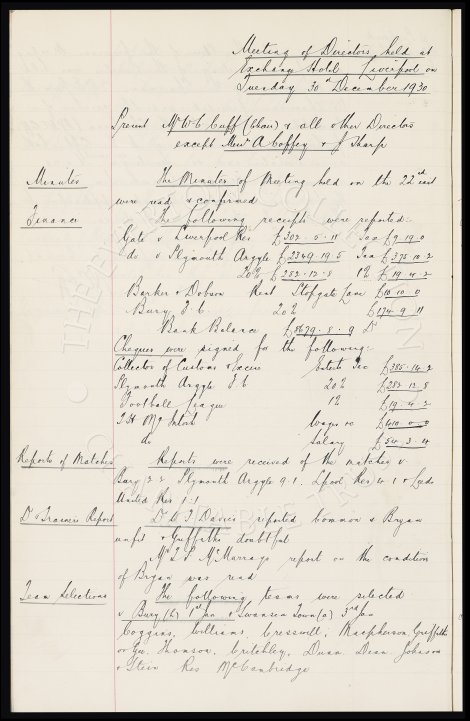 Meeting of Directors held at
Exchange Hotel Liverpool on
Tuesday 30th December 1930
Present Mr W C Cuff (Chair) & all other Directors
except Messrs A Coffey & J Sharp
Minutes The Minutes of Meeting held on the 22nd inst
were read & confirmed
Finance The following receipts were reported:-
Gate v Liverpool Res £302. 5. 11 Tax £9. 19. 0
do v Plymouth Argyle £2349. 19. 5 Tax £375. 10. 2
20% £282. 12. 8 1% £19. 4. 2
Barker & Dobson Rent Stopgate Lane £10. 10. 0
Bury F. C. 20% £174. 9. 11
Bank Balance £8679. 8. 9 Dr
Cheques were signed for the following:-
Collector of Customs & Excise Enterts Tax £385. 14. 2
Plymouth Argyle F C 20% £282. 12. 8
Football League 1% £19. 4. 2
T H McIntosh Wages &c £410. 0. 0
do Salary £54. 3. 4
Reports of Matches Reports were received of the matches v
Bury Plymouth Argyle 9.1. Lpool Res 4.1 & Leeds
United Res 1.1
Dr & Trainers Report Dr W J Davies reported Common & Bryan
unfit & Griffiths doubtful
Mr T P McMurray's report on the condition
of Bryan was read
Team Selections The following teams were selected
v Bury (h) 1st Jan & Swansea Town (a) 3rd Jan
Coggins, Williams, Cresswell, Macpherson, Griffiths
or Gee, Thomson, Critchley, Dunn, Dean Johnson
& Stein Res McCambridge